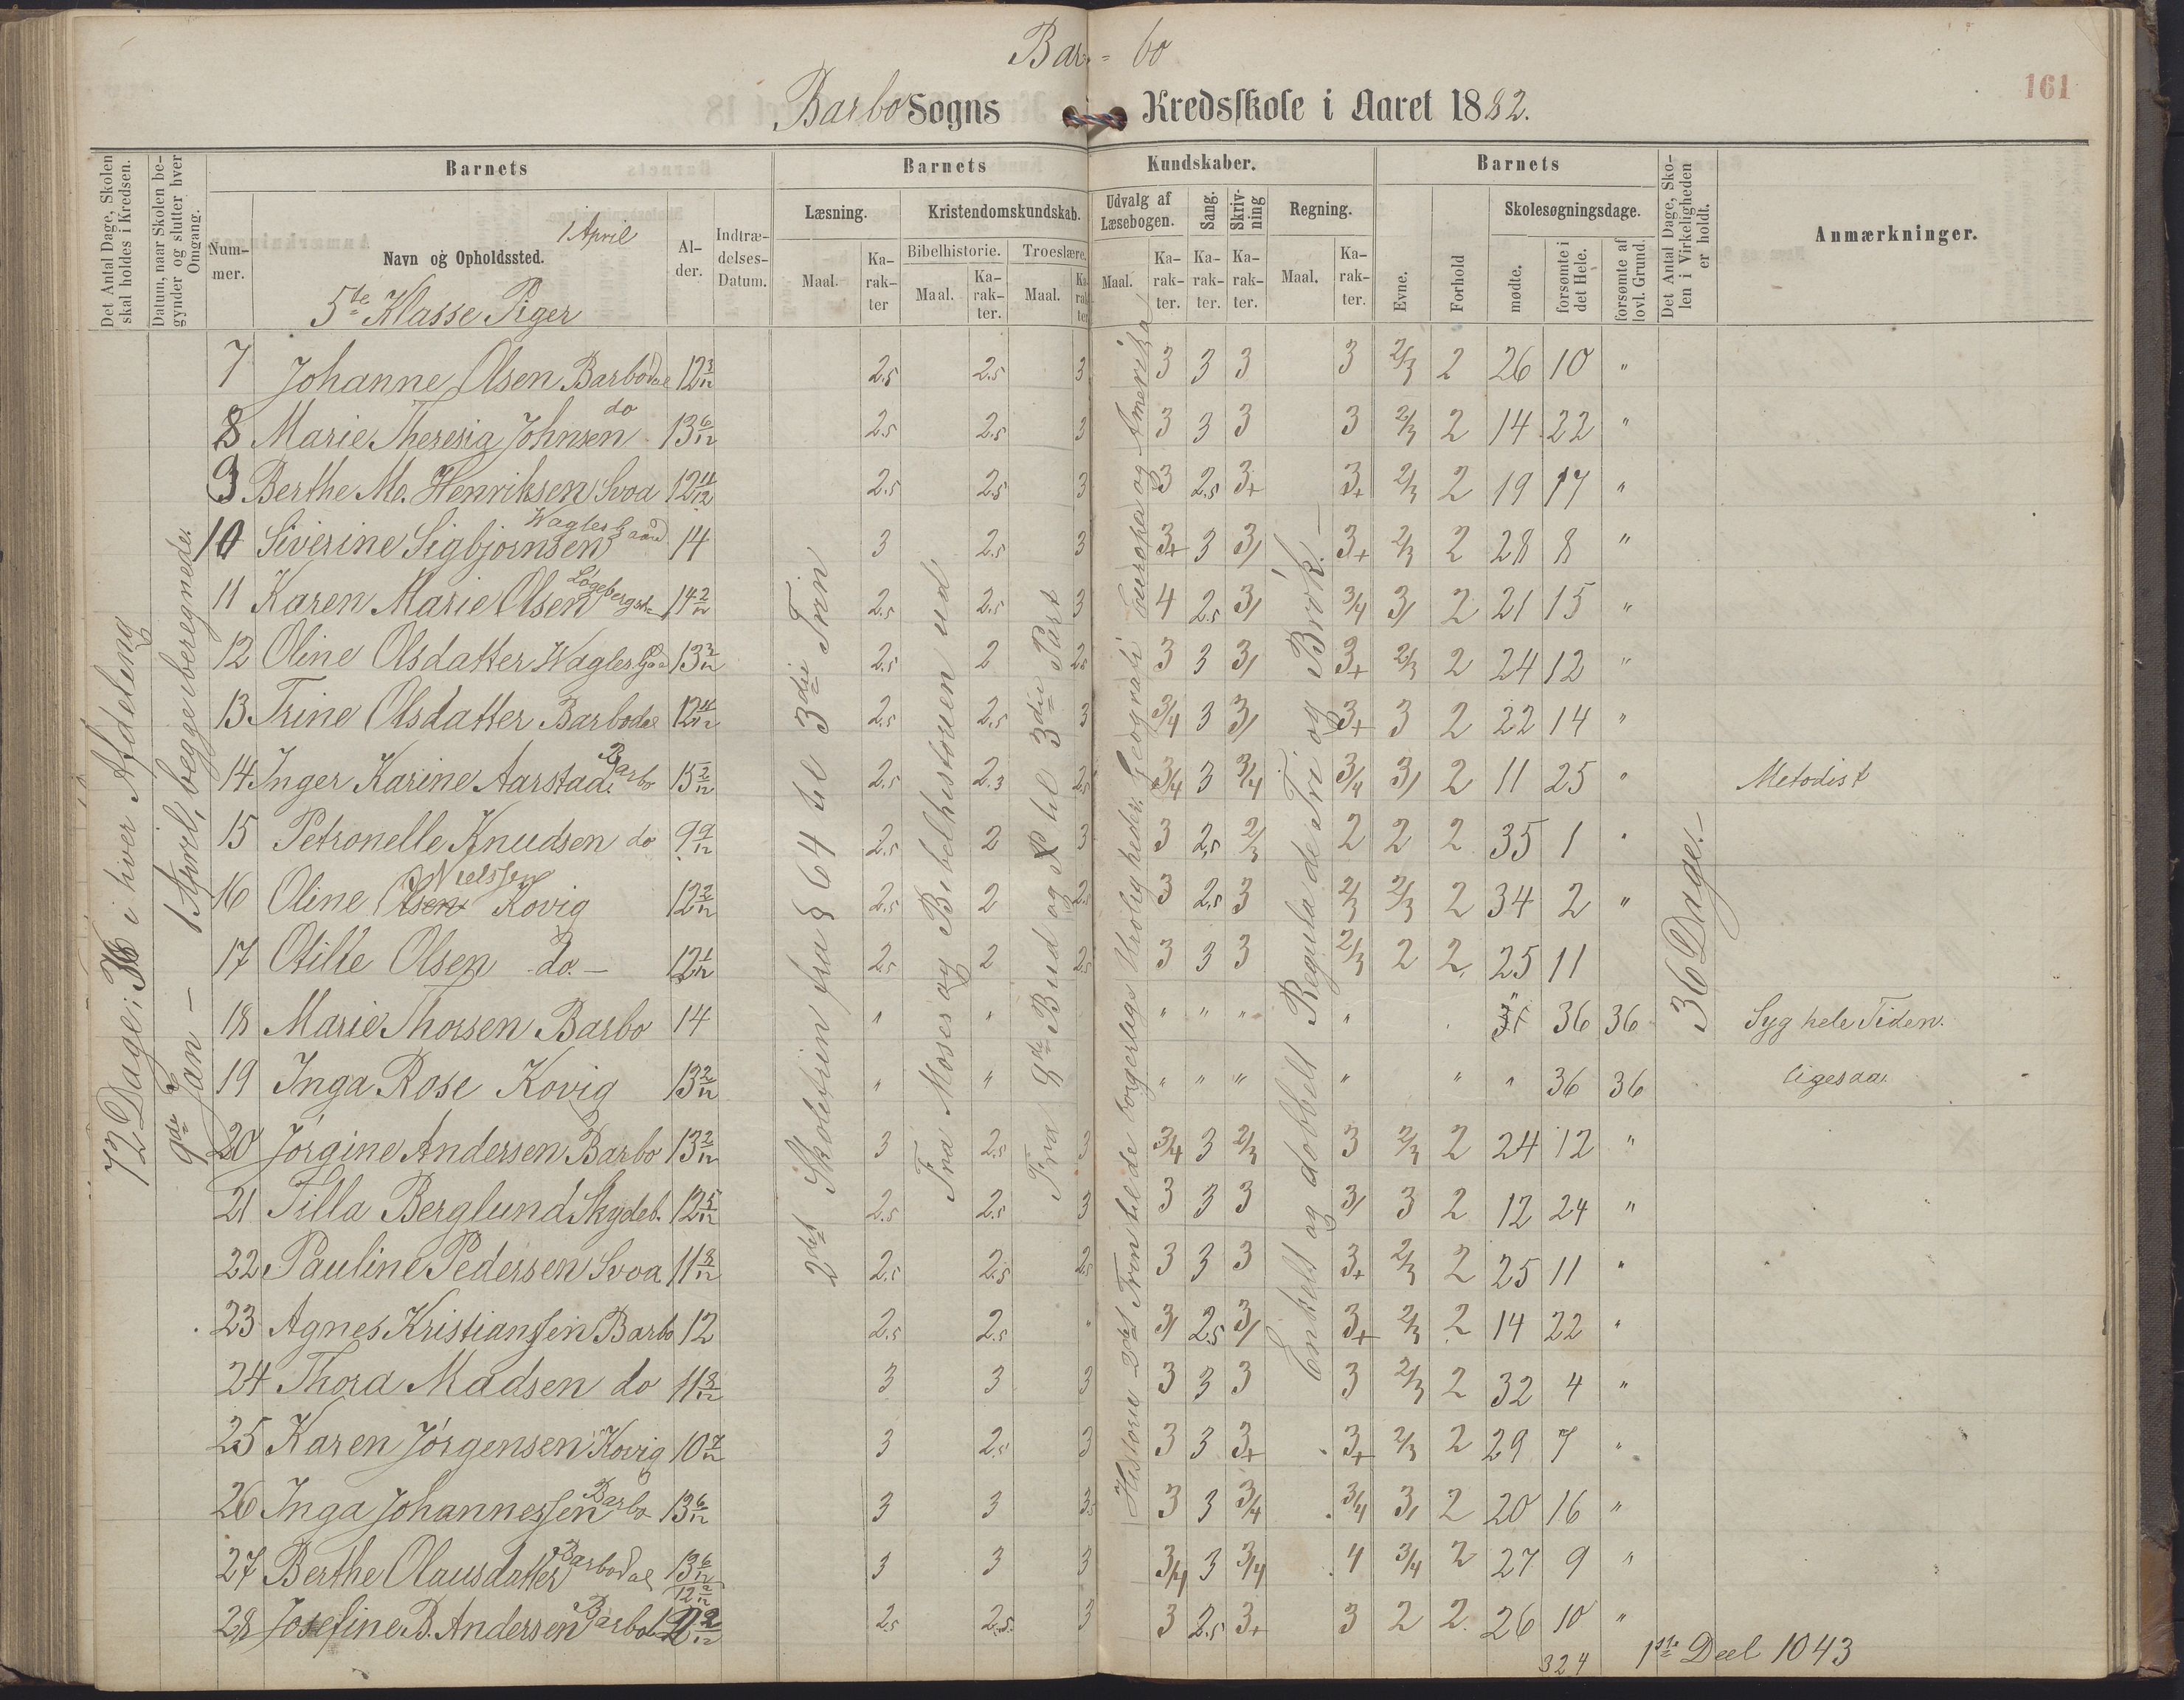 Bar- = bo
161
Barbo Sogns Kredsskole i Aaret 1882.
Det Antal Dage, Skolen skal holdes i Kredsen.
Datum, naar Skolen begynder og slutter hver Omgang.
Barnets
Barnets
Kundskaber.
Barnets
Det Antal Dage, Skolen i Virkeligheden er holdt.
Anmærkninger.
Nummer.
Navn og Opholdssted.
1 April
5te Klasse Piger
Alder.
Indtrædelses-Datum.
Læsning.
Kristendomskundskab.
Udvalg af Læsebogen.
Sang.
Skrivning
Regning.
Skolesøgningsdage.
Bibelhistorie.
Troeslære.
Maal.
Karakter
Maal.
Karakter.
Maal.
Karakter
Maal.
Karakter.
Karakter.
Karakter.
Maal.
Karakter.
Evne.
Forhold
mødte.
forsømte i det Hele.
forsømte af lovl. Grund.
72 Dage: 36 i hver Afdeling
9de Jan - 1 April, begge iberegnede.
2det Skoletrin fra § 64 til 3die Trin
Fra Moses og Bibelhistorien ud
Fra 8de Bud og til 3die Part
Historie 2det Trin til de borgerligs Uroligheder. Geografi Europa og Amerika
Enkelt og dobbelt Regula de Tri og Brøk.
36 Dage.-
7 Johanne Olsen Barbodal 12 3/12 2.5 2.5 3 3 3 3 3 2/3 2 26 10 "
8 Marie Theresia Johnsen do 13 6/12 2.5 2.5 3 3 3 3 3 2/3 2 14 22 "
9 Berthe M. Henriksen Svoa 12 11/12 2.5 2.5 3 3 2.5 3+ 3+ 2/3 2 19 17 "
10 Siverine Sigbjørnsen Wagtersgaard 14 3 2.5 3 3+ 3 3/ 3+ 2/3 2 28 8 "
11 Karen Marie Olsen 14 2/12 2.5 2.5 3 4 2.5 3/ 3/4 3/ 2 21 15 "
12 Oline Olsdatter 13 3/12 2.5 2 2.5 3 3 3/ 3+ 2/3 2 24 12 "
13 Trine Olsdatter Barbodal 12 11/12 2.5 2.5 3 3/4 3 3/ 3+ 3 2 22 14 "
14 Inger Karine Aarstad. Barbo 15 2/12 2.5 2.3 2.5 3/4 3 3/4 3/4 3/ 2 11 25 " Metodist
15 Petronelle Knudsen do 9 9/12 2.5 2 3 3 2.5 2/3 2 2 2 35 1 "
16 Oline Olsen Nielssen Kovig 12 2/12 2.5 2 2.5 3 2.5 3 2/3 2/3 2 34 2 "
17 Otilie Olsen do. - 12 1/12 2.5 2 2.5 3 3 3 2/3 2 2. 25 11
18 Marie Thorsen Barbo 14 " " " " " " " 36 36 Syg hele Tiden.
19 Inga Rose Kovig 13 2/12 " " " " " " " " 36 36 ligesaa.
20 Jørgine Andersen Barbo 13 2/12 3 2.5 3 3/4 3 2/3 3 2/3 2 24 12 "
21 Tilla Berglund Skydeb. 12 5/12 2.5 2.5 3 3 3 3 3/ 3 2 12 24 "
22 Pauline Pedersen Svoa 11 8/12 2.5 2.5 2.5 3 3 3 3+ 2/3 2 25 11 "
23 Agnes Kristianssen Barbo 12 2.5 2.5 " 3/ 2.5 3/ 3+ 2/3 2 14 22 "
24 Thora Madsen do 11 8/12 3 3 3 3 3 3 3 2/3 2 32 4 "
25 Karen Jørgensen Kovig 10 7/12 3 2.5 3 3 3 3+ 3+ 2/3 2 29 7 "
26 Inga Johannessen Barbo 13 6/12 3 3 3.5 3 3 3/4 3/4 3/ 2 20 16 "
27 Berthe Olausdatter Barbodal 13 6/12 3 3 3 3/4 3 3/4 4 3/4 2 27 9 "
28 Josefine B. Andersen Barbo 12 2/12 2.5 2.5 3 3 2.5 3+ 3 2 2 26 10 "
324 1ste Deel 1043